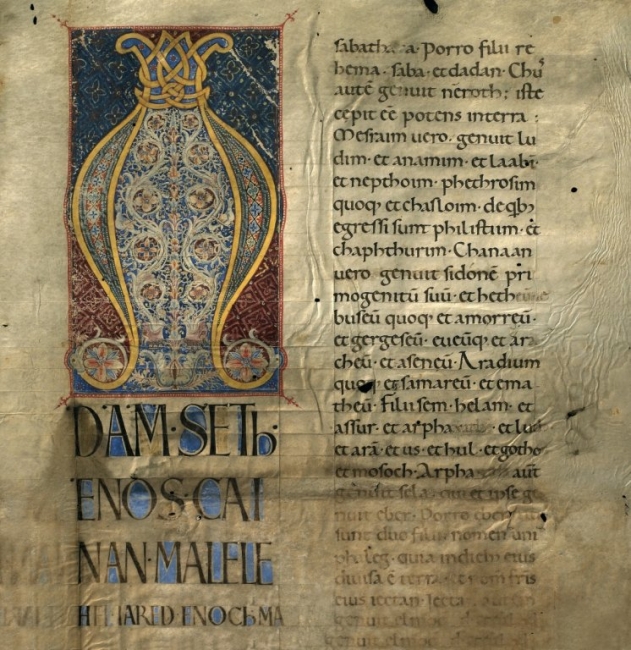 A
DAM·SETh·
ENOS·CAI
NAN·MALELE
HEL IARED ENOCh MA
sabathaca. Porro filii re
hema. saba. et dadan. Chus
autē genuit neroth; iste
cepit eē potens in terra;
Mesraim vero. genuit lu
dim. et anamim. et laabī.
et nepthoim. phethrosim
quoq; et chasloim. de qb;
egressi sunt philistiim. et
chaphthurim. Chanaan
vero genuit sidonē pri
mogenitū suū. et hetheū
buseū quoq; et amorreū.
et gergeseū. eveūq; et ara
cheū. et aseneū. Aradium
quoq; et samareū. et ema
theū. Filii sem. helam. et
assur. et arphaxath. et lud
et arā. et us. et hul. et gotho
et mosoch. Arphaxath aūt
genuit sela. qui et ipse ge
nuit eber. Porro eber
sunt duo filii nomen uni
phaleg. quia in dieb; eius
divisa ē terra. et nom fris
eius iectan. Iecta autem
genuit elmod